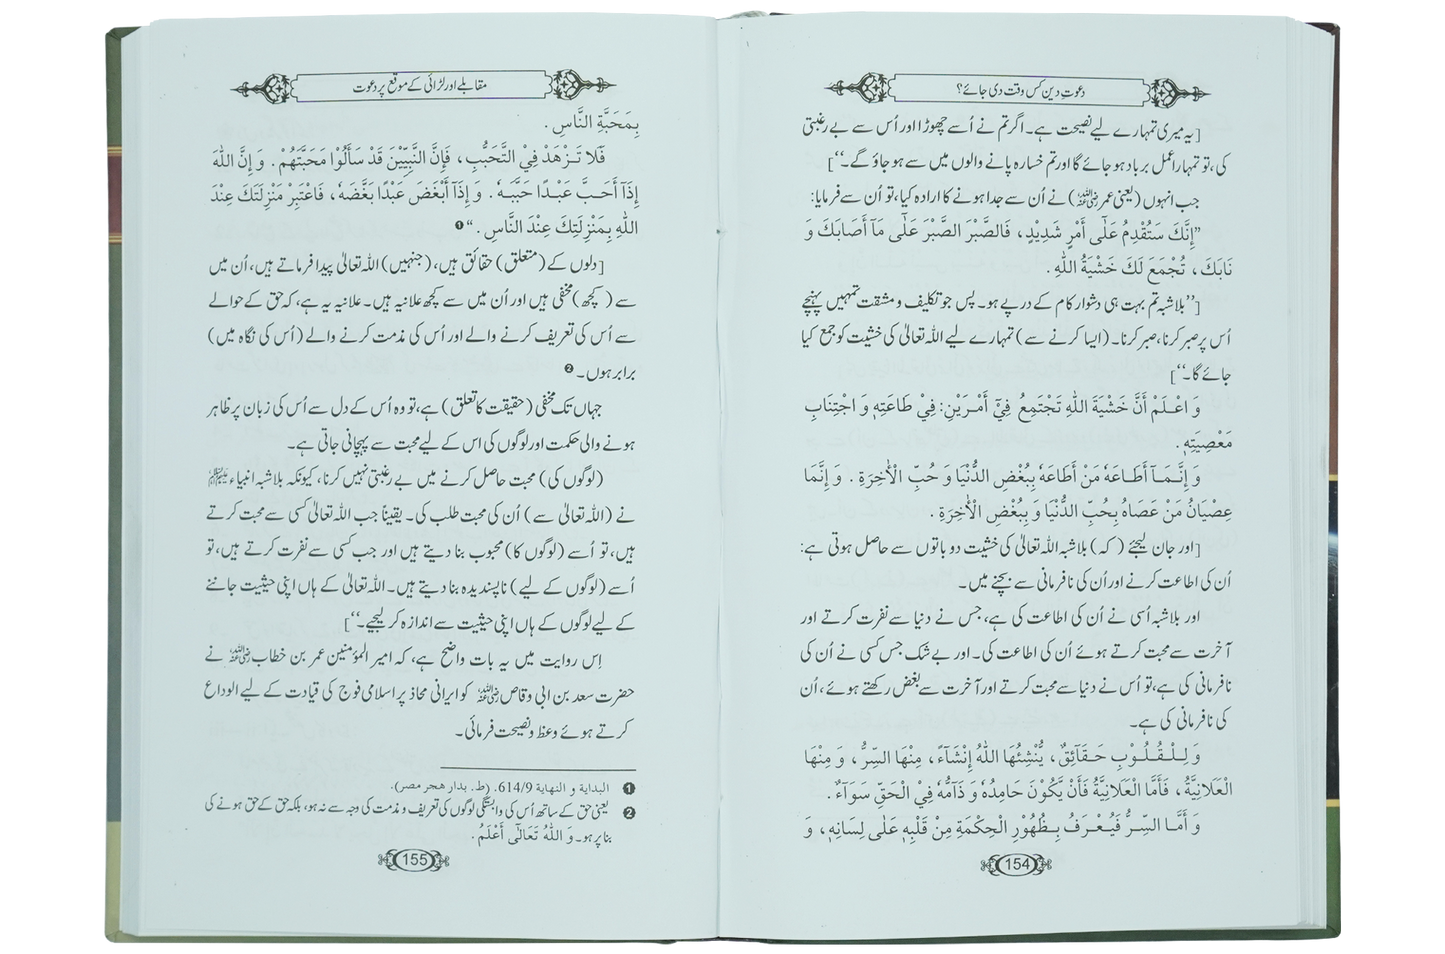 دعوتِ دین کس وقت دی جائے؟
[یہ میری تمہارے لیے نصیحت ہے۔ اگر تم نے اُسے چھوڑا اور اُس سے بے رغبتی
کی، تو تمہارا عمل برباد ہو جائے گا اور تم خسارہ پانے والوں میں سے ہو جاؤ گے۔‘‘]
جب انہوں (یعنی عمر رضی اللہ عنہ) نے اُن سے جدا ہونے کا ارادہ کیا، تو اُن سے فرمایا:
”إِنَّكَ سَتُقْدِمُ عَلٰى أَمْرٍ شَدِيْدٍ، فَالصَّبْرَ الصَّبْرَ عَلٰى مَآ أَصَابَكَ وَ
نَابَكَ، تُجْمَعَ لَكَ خَشْيَةُ اللّٰهِ.
[’’بلاشبہ تم بہت ہی دشوار کام کے درپے ہو۔ پس جو تکلیف و مشقت تمہیں پہنچے
اُس پر صبر کرنا، صبر کرنا۔ (ایسا کرنے سے) تمہارے لیے اللہ تعالیٰ کی خشیت کو جمع کیا
جائے گا۔‘‘]
وَ اعْلَمْ أَنَّ خَشْيَةَ اللّٰهِ تَجْتَمِعُ فِيْٓ أَمْرَيْنِ: فِيْ طَاعَتِهٖ وَ اجْتِنَابِ
مَعْصِيَتِهٖ.
وَ إِنَّمَآ أَطَاعَهٗ مَنْ أَطَاعَهٗ بِبُغْضِ الدُّنْيَا وَ حُبِّ الْأٰخِرَةِ. وَ إِنَّمَا
عِصْيَانُ مَنْ عَصَاهُ بِحُبِّ الدُّنْيَا وَ بِبُغْضِ الْأٰخِرَةِ.
[اور جان لیجئے (کہ) بلاشبہ اللہ تعالیٰ کی خشیت دو باتوں سے حاصل ہوتی ہے:
اُن کی اطاعت کرنے اور اُن کی نافرمانی سے بچنے میں۔
اور بلاشبہ اُسی نے اُن کی اطاعت کی ہے، جس نے دنیا سے نفرت کرتے اور
آخرت سے محبت کرتے ہوئے اُن کی اطاعت کی۔ اور بے شک جس کسی نے اُن کی
نافرمانی کی ہے، تو اُس نے دنیا سے محبت کرتے اور آخرت سے بغض رکھتے ہوئے، اُن
کی نافرمانی کی ہے۔
وَ لِلْقُلُوْبِ حَقَآئِقٌ، يُّنْشِئُهَا اللّٰهُ إِنْشَآءً، مِنْهَا السِّرُّ، وَ مِنْهَا
الْعَلَانِيَّةُ، فَأَمَّا الْعَلَانِيَّةُ فَأَنْ يَّكُوْنَ حَامِدُهٗ وَ ذَآمُّهٗ فِيْ الْحَقِّ سَوَآءٌ.
وَ أَمَّا السِّرُّ فَيُعْرَفُ بِظُهُوْرِ الْحِكْمَةِ مِنْ قَلْبِهٖ عَلٰى لِسَانِهٖ، وَ
154
مقابلے اور لڑائی کے موقع پر دعوت
بِمَحَبَّةِ النَّاسِ.
فَلَا تَزْهَدْ فِيْ التَّحَبُّبِ، فَإِنَّ النَّبِيِّيْنَ قَدْ سَأَلُوْا مَحَبَّتَهُمْ. وَ إِنَّ اللّٰهَ
إِذَآ أَحَبَّ عَبْدًا حَبَّبَهٗ. وَ إِذَآ أَبْغَضَ عَبْدًا بَغَّضَهٗ، فَاعْتَبِرْ مَنْزِلَتَكَ عِنْدَ
اللّٰهِ بِمَنْزِلَتِكَ عِنْدَ النَّاسِ.“❶
[دلوں کے (متعلق) حقائق ہیں، (جنہیں) اللہ تعالیٰ پیدا فرماتے ہیں، اُن میں
سے (کچھ) مخفی ہیں اور اُن میں سے کچھ علانیہ ہیں۔ علانیہ یہ ہے، کہ حق کے حوالے
سے اُس کی تعریف کرنے والے اور اُس کی مذمت کرنے والے (اُس کی نگاہ میں)
برابر ہوں۔❷
جہاں تک مخفی (حقیقت کا تعلق) ہے، تو وہ اُس کے دل سے اُس کی زبان پر ظاہر
ہونے والی حکمت اور لوگوں کی اس کے لیے محبت سے پہچانی جاتی ہے۔
(لوگوں کی) محبت حاصل کرنے میں بے رغبتی نہیں کرنا، کیونکہ بلاشبہ انبیاء
نے (اللہ تعالیٰ سے) اُن کی محبت طلب کی۔ یقیناً جب اللہ تعالیٰ کسی سے محبت کرتے
ہیں، تو اُسے (لوگوں کا) محبوب بنا دیتے ہیں اور جب کسی سے نفرت کرتے ہیں، تو
اُسے (لوگوں کے لیے) ناپسندیدہ بنا دیتے ہیں۔ اللہ تعالیٰ کے ہاں اپنی حیثیت جاننے
کے لیے لوگوں کے ہاں اپنی حیثیت سے اندازہ کر لیجیے۔‘‘]
اِس روایت میں یہ بات واضح ہے، کہ امیر المؤمنین عمر بن خطاب رضی اللہ عنہ نے
حضرت سعد بن ابی وقاص رضی اللہ عنہ کو ایرانی محاذ پر اسلامی فوج کی قیادت کے لیے الوداع
کرتے ہوئے وعظ و نصیحت فرمائی۔
❶ البداية و النهاية 614/9. (ط. بدار هجر مصر).
❷ یعنی حق کے ساتھ اُس کی وابستگی لوگوں کی تعریف و مذمت کی وجہ سے نہ ہو، بلکہ حق کے حق ہونے کی
بنا پر ہو۔ وَ اللّٰهُ تَعَالٰٓى أَعْلَمُ.
155